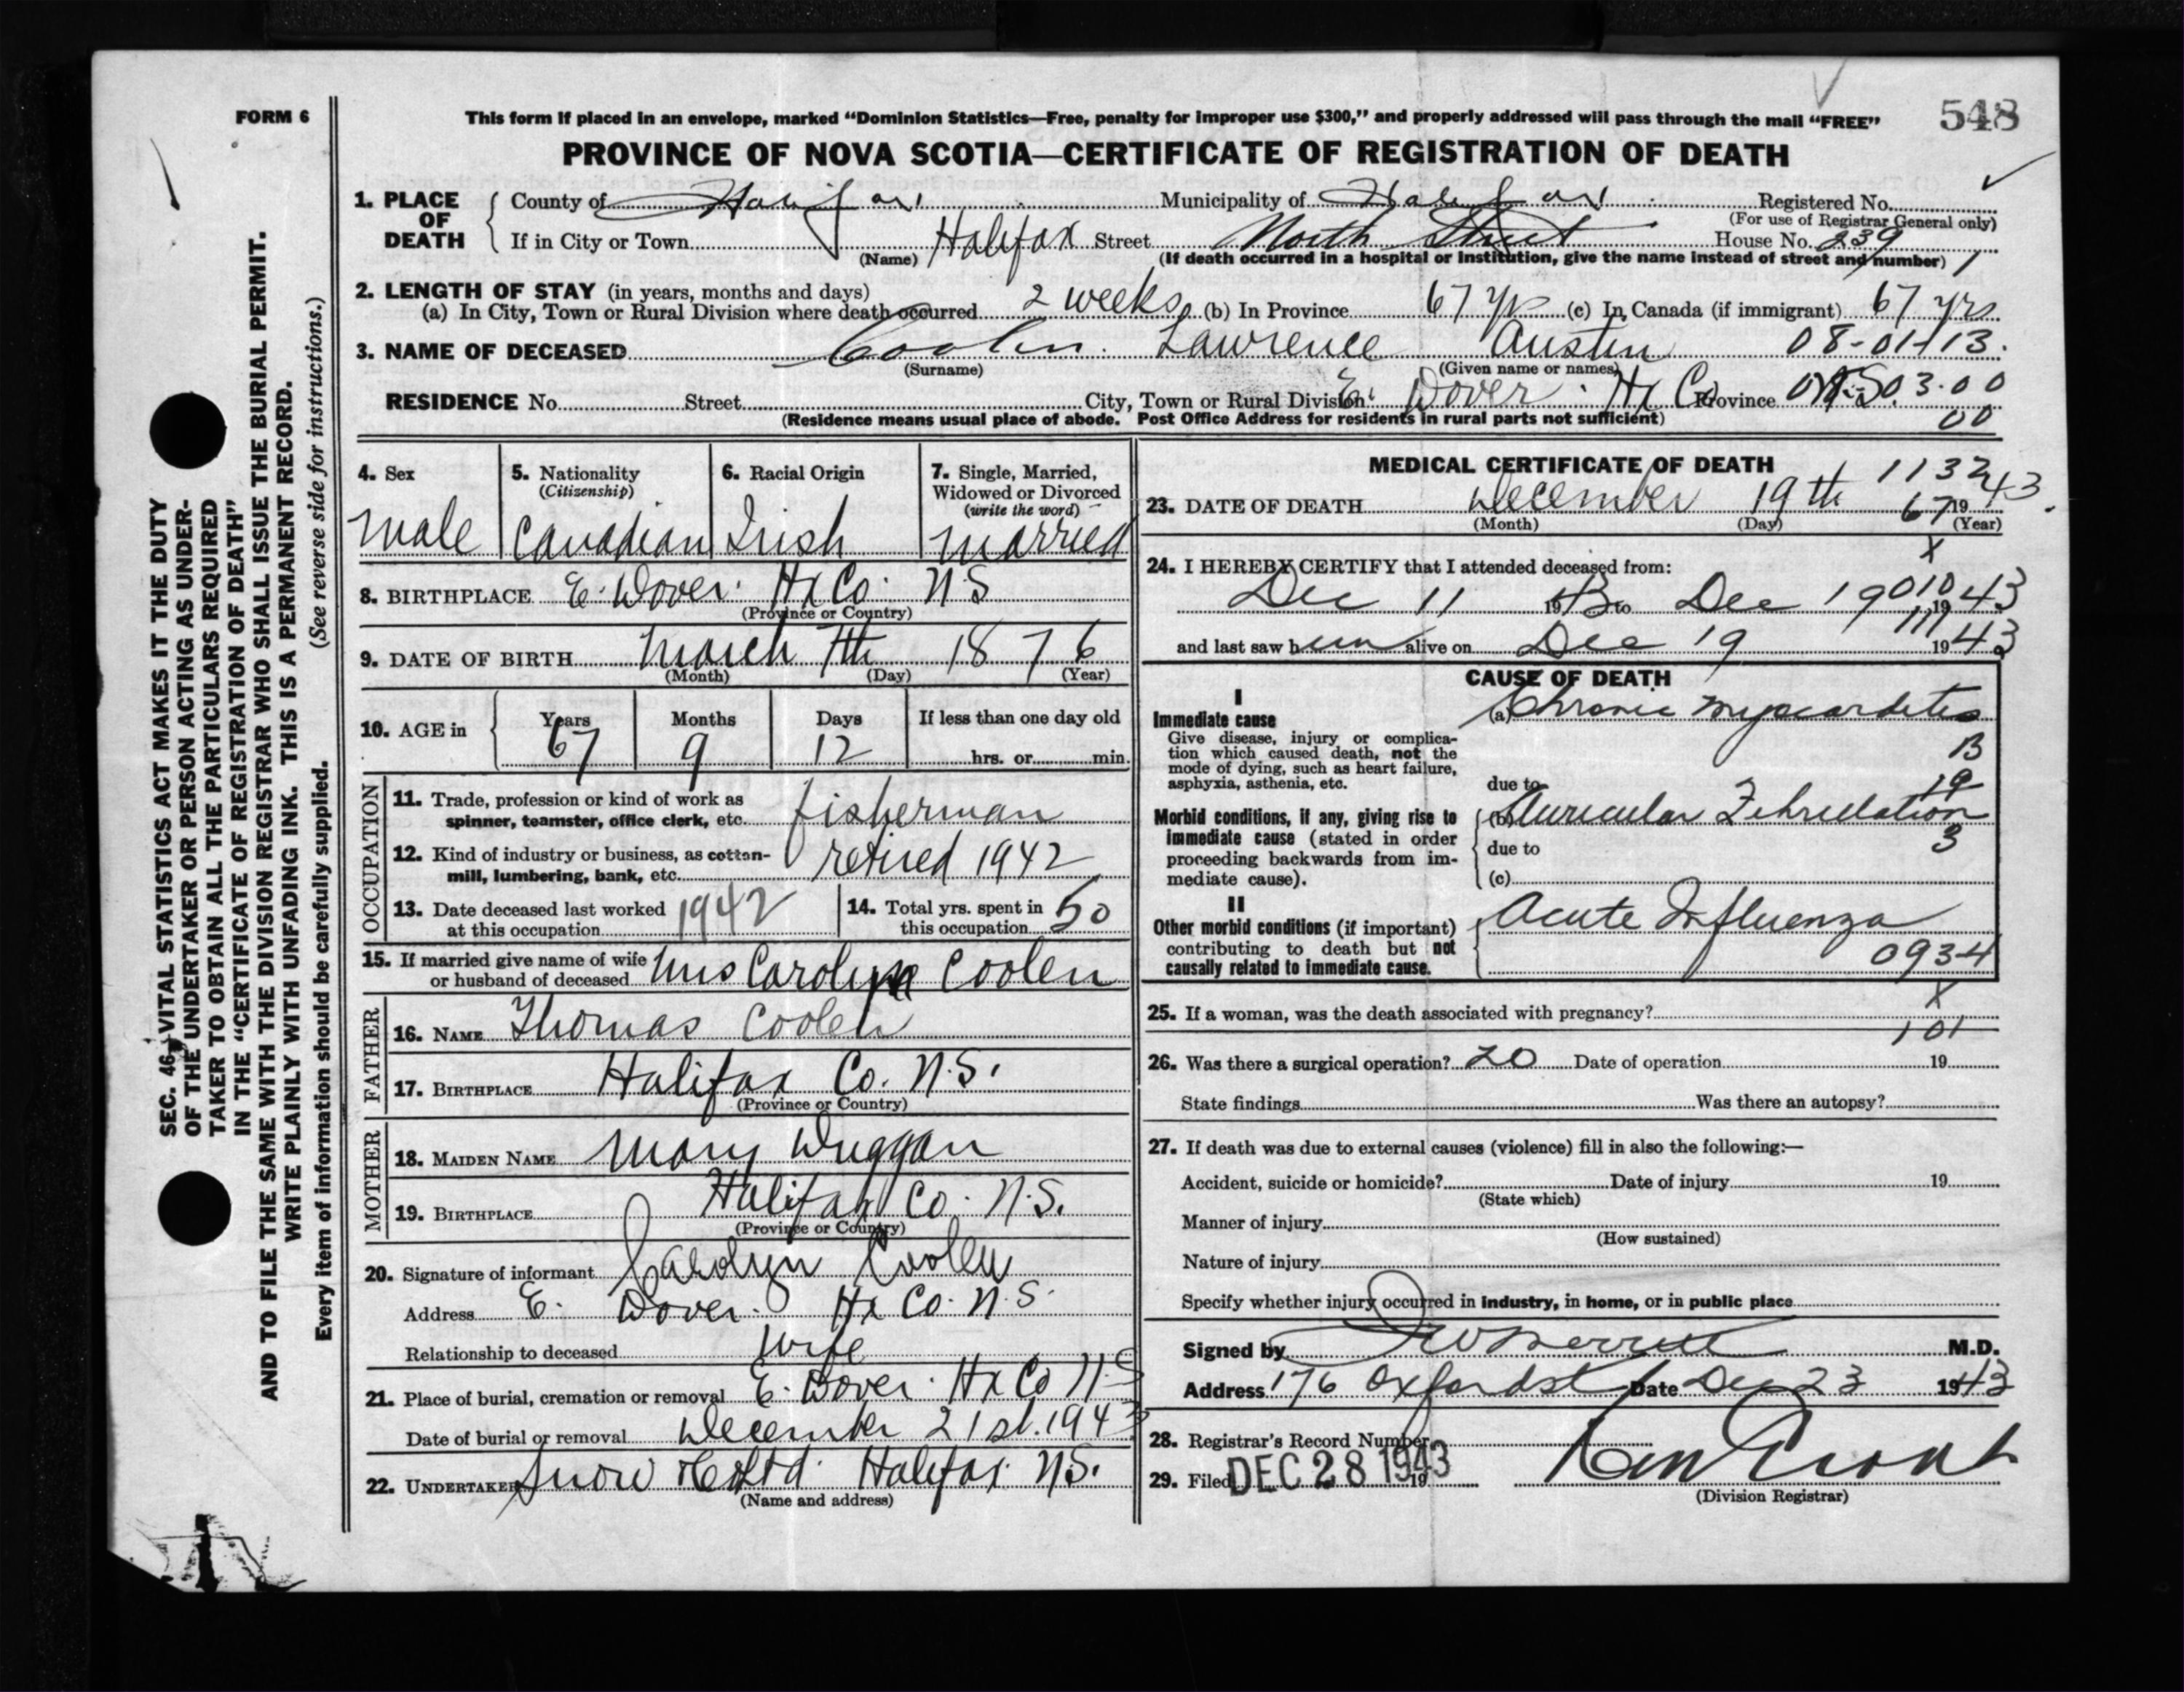 FORM 6
This form if placed in an envelope, marked "Dominion Statistics—Free, penalty for improper use $300," and properly addressed will pass through the mail "FREE"
548
PROVINCE OF NOVA SCOTIA—CERTIFICATE OF REGISTRATION OF DEATH
1. PLACE OF DEATH
County of Halifax Municipality of Halifax Registered No.
(For use of Registrar General only)
If in City or Town Halifax Street North Street House No. 239
(Name) (If death occurred in a hospital or institution, give the name instead of street and number)
2. LENGTH OF STAY (in years, months and days)
(a) In City, Town or Rural Division where death occurred 2 weeks (b) In Province 67 yrs (c) In Canada (if immigrant) 67 yrs
3. NAME OF DECEASED Coolen Lawrence Austin 08-01-13
(Surname) (Given name or names)
RESIDENCE No. Street City, Town or Rural Division E. Dover Hx Co Province N.S. 03.00
(Residence means usual place of abode. Post Office Address for residents in rural parts not sufficient) 00
4. Sex 5. Nationality (Citizenship) 6. Racial Origin 7. Single, Married, Widowed or Divorced (write the word)
male Canadian Irish married
8. BIRTHPLACE E. Dover Hx Co. N S
(Province or Country)
9. DATE OF BIRTH March 7th 1876
(Month) (Day) (Year)
10. AGE in Years Months Days If less than one day old
67 9 12 hrs. or min.
OCCUPATION
11. Trade, profession or kind of work as spinner, teamster, office clerk, etc. fisherman
12. Kind of industry or business, as cotton-mill, lumbering, bank, etc. retired 1942
13. Date deceased last worked at this occupation 1942
14. Total yrs. spent in this occupation 50
15. If married give name of wife or husband of deceased Mrs Carolyn Coolen
FATHER
16. NAME Thomas Coolen
17. BIRTHPLACE Halifax Co. N.S.
(Province or Country)
MOTHER
18. MAIDEN NAME Mary Duggan
19. BIRTHPLACE Halifax Co. N.S.
(Province or Country)
20. Signature of informant Carolyn Coolen
Address E. Dover Hx Co. N.S.
Relationship to deceased wife
21. Place of burial, cremation or removal E. Dover Hx Co N S
Date of burial or removal December 21st. 1943
22. UNDERTAKER Snow & Co Ltd Halifax N.S.
(Name and address)
MEDICAL CERTIFICATE OF DEATH
1132
23. DATE OF DEATH December 19th 1943
67
(Month) (Day) (Year)
X
24. I HEREBY CERTIFY that I attended deceased from:
Dec 11 1943 to Dec 19 1943
010
111
and last saw him alive on Dec 19 1943
CAUSE OF DEATH
I
Immediate cause
Give disease, injury or complication which caused death, not the mode of dying, such as heart failure, asphyxia, asthenia, etc.
(a) Chronic Myocarditis
B
19
due to
Morbid conditions, if any, giving rise to immediate cause (stated in order proceeding backwards from immediate cause).
(b) Auricular Fibrillation
3
due to
(c)
II
Other morbid conditions (if important) contributing to death but not causally related to immediate cause.
Acute Influenza
0934
X
25. If a woman, was the death associated with pregnancy?
101
26. Was there a surgical operation? no Date of operation 19
State findings Was there an autopsy?
27. If death was due to external causes (violence) fill in also the following:—
Accident, suicide or homicide? Date of injury 19
(State which)
Manner of injury
(How sustained)
Nature of injury
Specify whether injury occurred in industry, in home, or in public place
Signed by M.D.
Address 176 Oxford st Date Dec 23 1943
28. Registrar's Record Number
29. Filed DEC 28 1943 19
(Division Registrar)
SEC. 46—VITAL STATISTICS ACT MAKES IT THE DUTY
OF THE UNDERTAKER OR PERSON ACTING AS UNDER-
TAKER TO OBTAIN ALL THE PARTICULARS REQUIRED
IN THE "CERTIFICATE OF REGISTRATION OF DEATH"
AND TO FILE THE SAME WITH THE DIVISION REGISTRAR WHO SHALL ISSUE THE BURIAL PERMIT.
WRITE PLAINLY WITH UNFADING INK. THIS IS A PERMANENT RECORD.
(See reverse side for instructions.)
Every item of information should be carefully supplied.